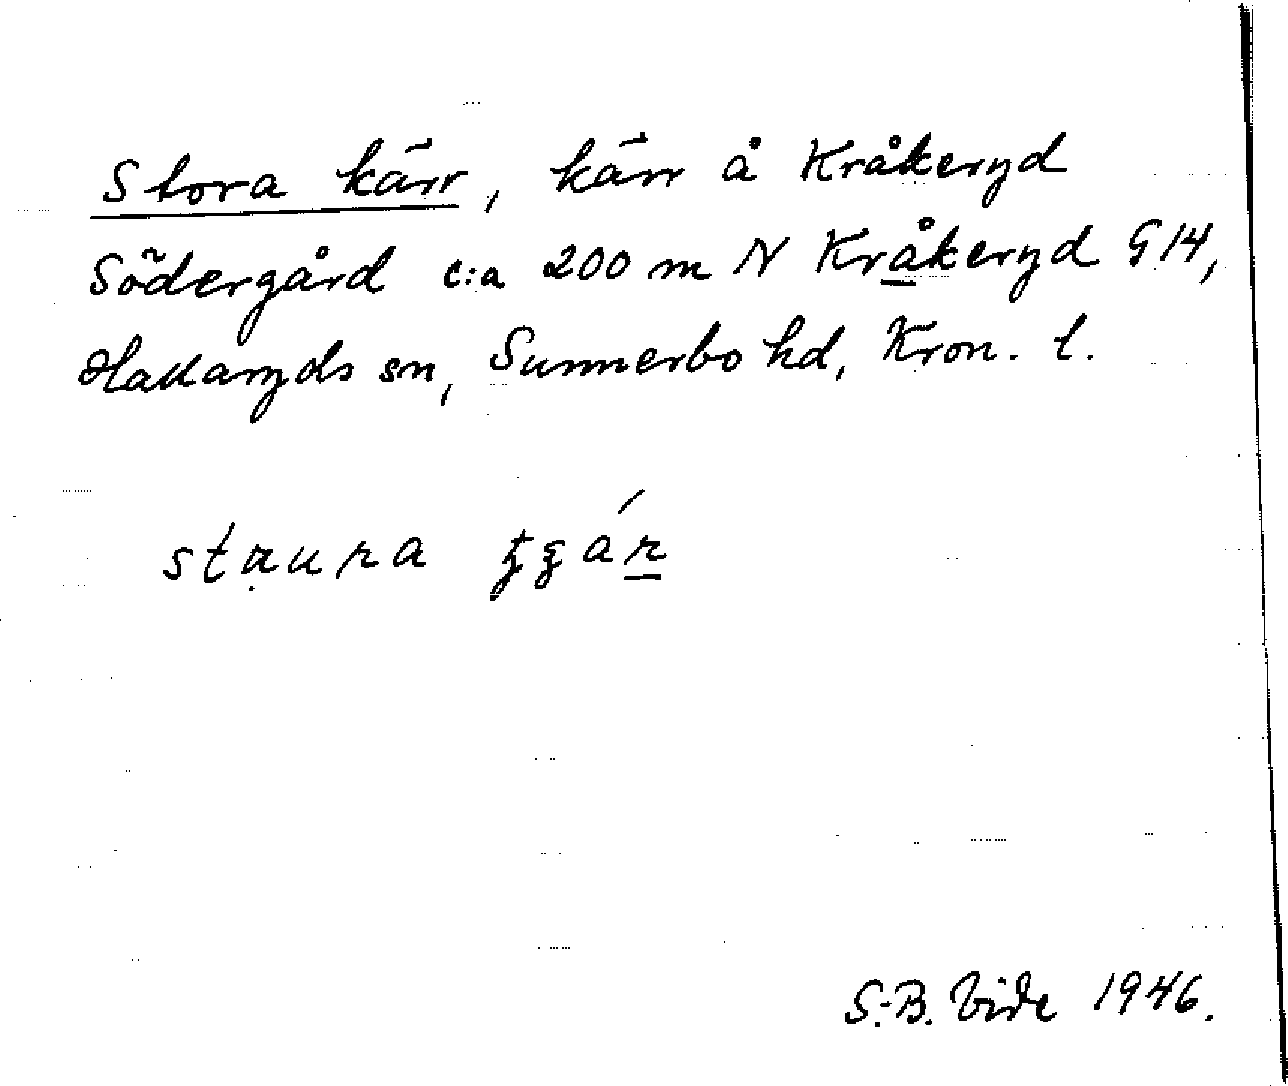 Stora kärr, kärr å Kråkeryd
Södergård c:a 200 m N Kråkeryd G14,
Hallaryds sn, Sunnerbo hd, Kron. l.
staura
S.-B. Vide 1946.